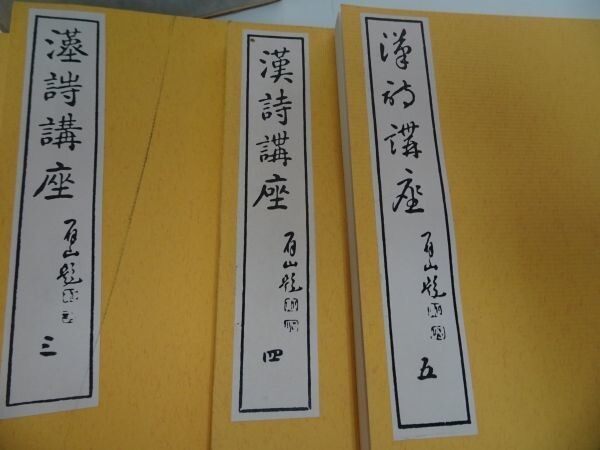 漢詩講座
百山題
三
漢詩講座
百山題
四
漢詩講座
百山題
五